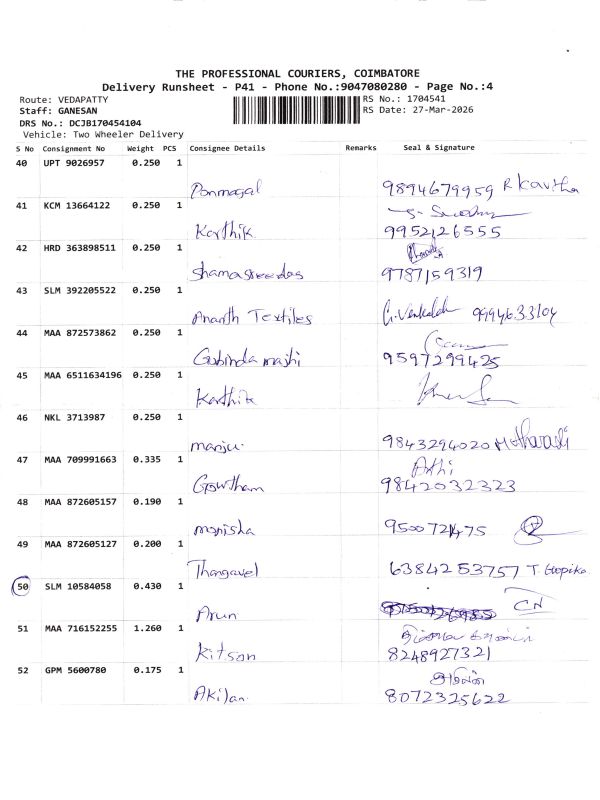 THE PROFESSIONAL COURIERS, COIMBATORE
Delivery Runsheet - P41 - Phone No.:9047080280 - Page No.:4
Route: VEDAPATTY RS No.: 1704541
Staff: GANESAN RS Date: 27-Mar-2026
DRS No.: DCJB170454104
Vehicle: Two Wheeler Delivery
S No Consignment No Weight PCS Consignee Details Remarks Seal & Signature
40 UPT 9026957 0.250 1
Ponmagal 9894679959 R Kavitha
41 KCM 13664122 0.250 1
Karthik 9952126555
42 HRD 363898511 0.250 1
Shamasreedas 9787159319
43 SLM 392205522 0.250 1
Ananth Textiles G. Venkatesh 9994633104
44 MAA 872573862 0.250 1
Gobinda majhi 9597299425
45 MAA 6511634196 0.250 1
Karthik
46 NKL 3713987 0.250 1
manju. 9843294020
47 MAA 709991663 0.335 1
Athi
Gowtham 9842032323
48 MAA 872605157 0.190 1
monisha
49 MAA 872605127 0.200 1
Thangavel 6384253757 T. Gopika
50 SLM 10584058 0.430 1
Arun CN
51 MAA 716152255 1.260 1
Kitson 8248927321
52 GPM 5600780 0.175 1
அகிலன்
Akilan 8072325622